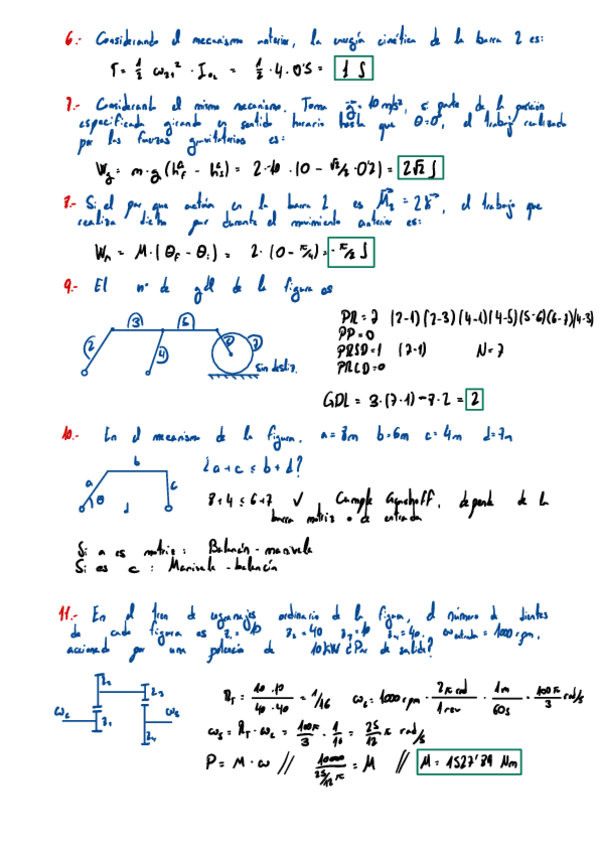 6.- Considerando el mecanismo anterior, la energía cinética de la barra 2 es:
T = 1/2 ω₂₀² · I₀₂ = 1/2 · 4 · 0'5 = 1 J
7.- Considerando el mismo mecanismo. Toma g = 10 m/s², si parte de la posición
especificada girando en sentido horario hasta que θ=0°, el trabajo realizado
por las fuerzas gravitatorias es:
Wg = m · g (hf - hi) = 2·10 · (0 - √2/2 · 0'2) = 2√2 J
7.- Si el par que actúa en la barra 2, es M₂ = 2k, el trabajo que
realiza dicho par durante el movimiento anterior es:
Wn = M · (θf - θi) = 2 · (0 - π/4) = -π/2 J
9.- El nº de gdl de la figura es
PR = 7 (2-1)(2-3)(4-1)(4-5)(5-6)(6-7)(4-3)
PP = 0
PRSD = 1 (7-1) N = 7
PRCD = 0
2 3 4 5 P 7
Sin desliz.
GDL = 3·(7-1) - 7·2 = 2
10.- En el mecanismo de la figura. a = 8m b = 6m c = 4m d = 7m
a b c d θ
¿a + c ≤ b + d?
8 + 4 ≤ 6 + 7 ✓ Cumple Grashoff, depende de la
barra motriz o de entrada
Si a es motriz: Balancín - manivela
Si es c: Manivela - balancín
11.- En el tren de engranajes ordinario de la figura, el número de dientes
de cada figura es z₁ = 10 z₂ = 40 z₃ = 10 z₄ = 40. ω entrada = 1000 rpm,
accionado por una potencia de 10 kW ¿Par de salida?
ωe z₁ z₂ z₃ z₄ ωs
RT = 10·10 / 40·40 = 1/16 ωe = 1000 rpm · 2π rad / 1 rev · 1m / 60s = 100π/3 rad/s
ωs = RT · ωe = 100π/3 · 1/16 = 25/12 π rad/s
P = M · ω // 10000 / 25/12 π = M // M = 1527'89 Nm